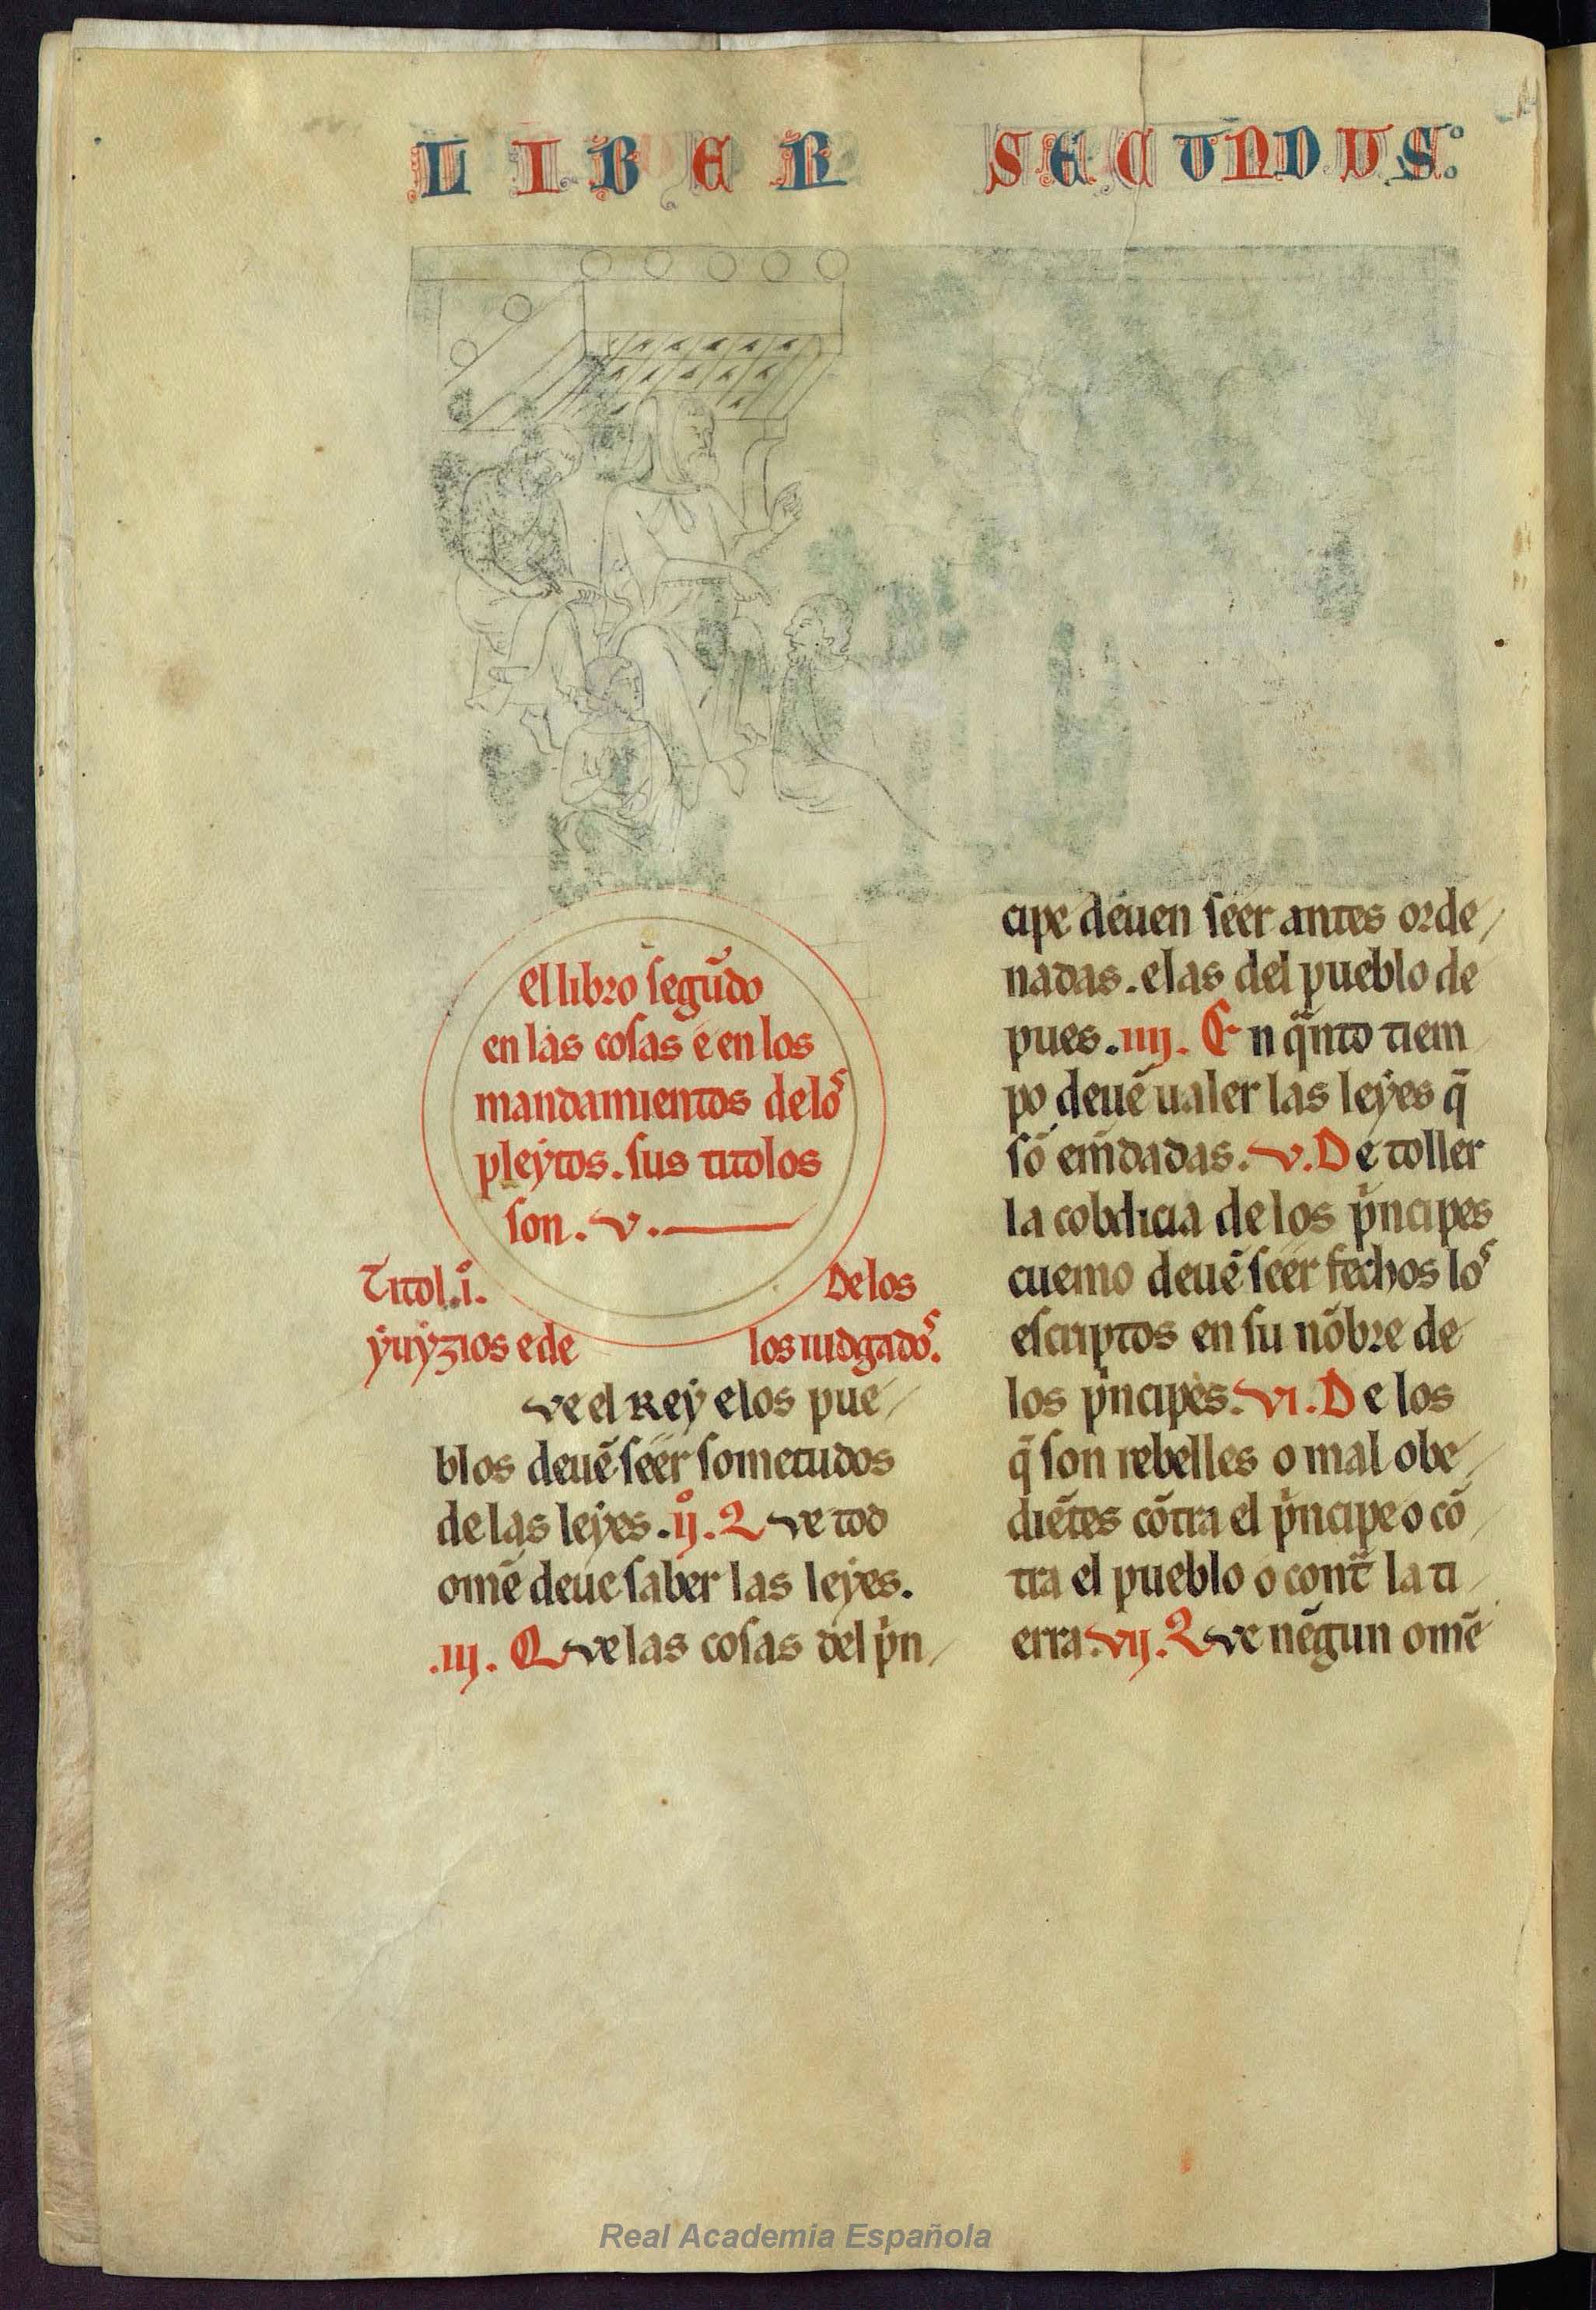 LIBER SECUNDUS
El libro segũdo
en las cosas e en los
mandamientos de los
pleytos. sus titolos
son. v.
Titol. i. De los
yuyzios e de los iudgados.
ve el Rey e los pue
blos deuẽ seer sometudos
de las leyes. ij. Que tod
omẽ deue saber las leyes.
.iij. Que las cosas del pͥn
cipe deuen seer antes orde
nadas. e las del pueblo de
pues. iiij. En q̃nto tiem
po deuẽ ualer las leyes q̃
sõ em̃dadas. v. De toller
la cobdicia de los pͥncipes
cuemo deuẽ seer fechos los
escriptos en su nõbre de
los pͥncipes. vi. De los
q̃ son rebelles o mal obe
diẽtes cõtra el pͥncipe o cõ
tra el pueblo o cont̃ la ti
erra. vij. Que nẽgun omẽ
Real Academia Española